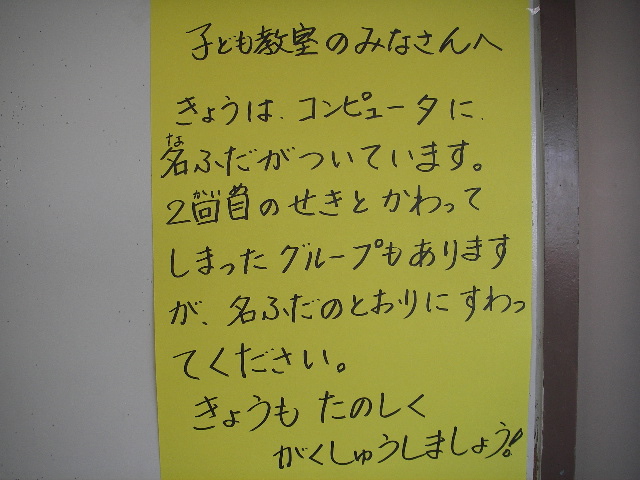 子ども教室のみなさんへ
きょうは、コンピュータに、
名ふだがついています。
2回目のせきとかわって
しまったグループもあります
が、名ふだのとおりにすわっ
てください。
きょうもたのしく
がくしゅうしましょう!